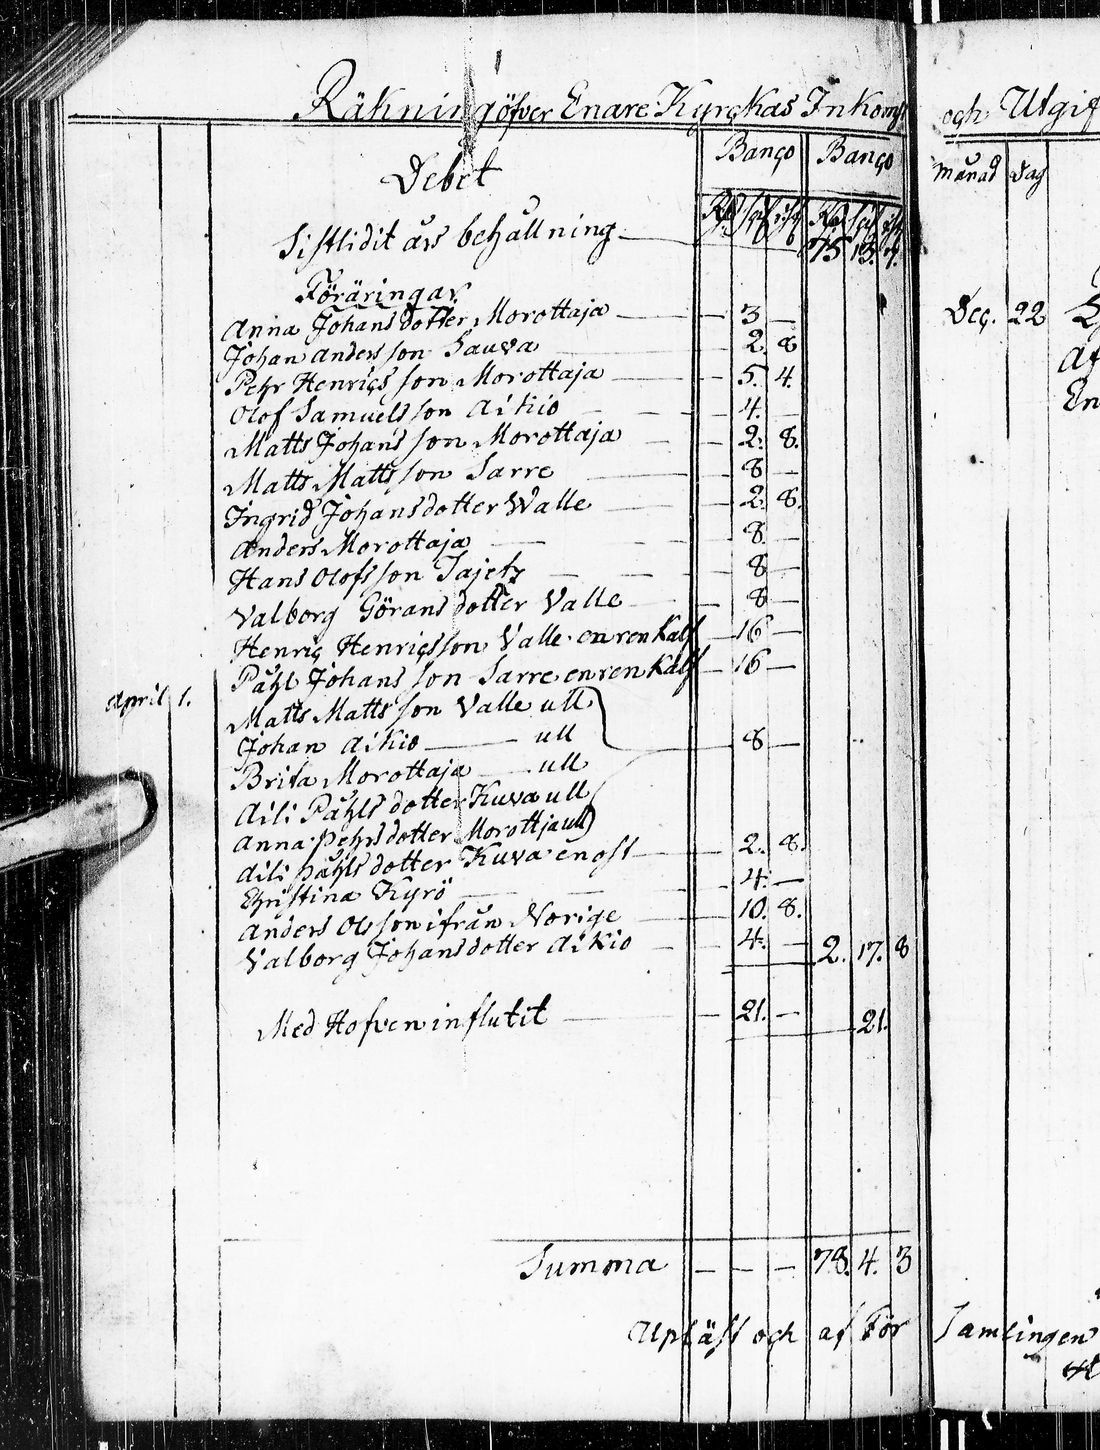 Räkning öfver Enare Kyrckas Inkomst
Debet
Banco Banco
Rd sch rst Rd sch rst
Sistlidit års behållning 75 13. 7.
Föräringar
Anna Johansdotter Morottaja — 3 —
Johan Andersson Sauva 2. 8
Pehr Henricsson Morottaja — 5. 4.
Olof Samuelsson Aikio — 4. —
Matts Johansson Morottaja — 2. 8.
Matts Mattsson Sarre — 8 —
Ingrid Johansdotter Walle — 2. 8.
Anders Morottaja — 8 —
Hans Olofsson Sajetz — 8 —
Valborg Göransdotter Valle — 8 —
Henric Henricsson Valle en ren kalf — 16 —
Påhl Johansson Sarre en ren kalf — 16 —
April 1. Matts Mattsson Valle ull
Johan Aikio — ull — 8 —
Brita Morottaja — ull
Aili Påhlsdotter Kuva ull
Anna Pehrsdotter Morottja ull
Aili Påhlsdotter Kuva en ost — 2. 8.
Christina Kyrö — 4. —
Anders Olsson ifrån Norige — 10. 8.
Valborg Johansdotter Aikio — 4. — 2. 17. 8
Med Hofven influtit — 21. — 21.
Summa — — — 78. 4. 3
Upläst och af För
och Utgif
Månad Dag
Dec. 22
Af
En
Samlingen